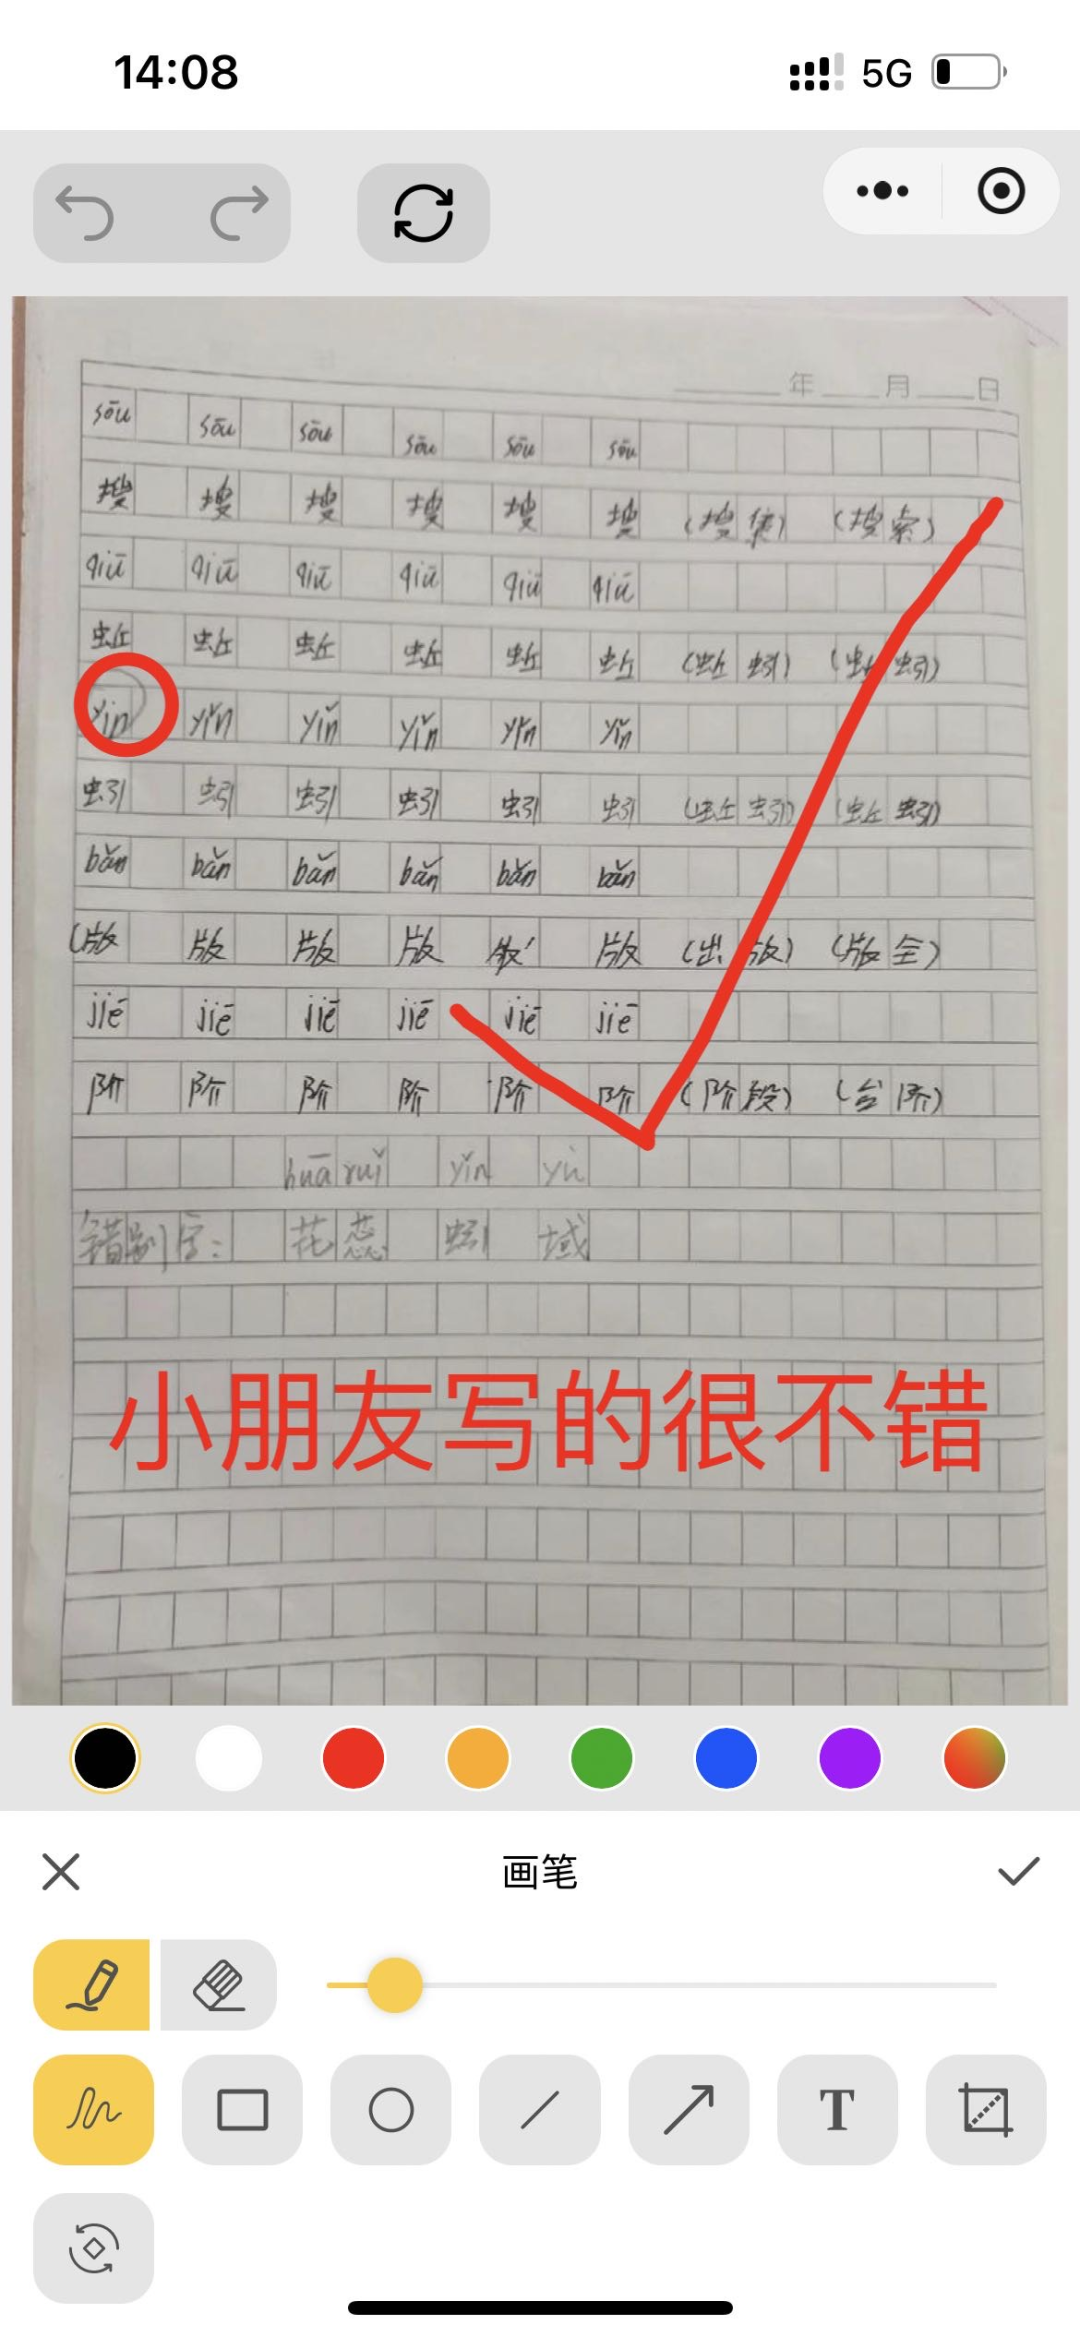 14:08 5G
年 月 日
sōu sōu sōu sōu sōu sōu
搜 搜 搜 搜 搜 搜 (搜集) (搜索)
qiū qiū qiū qiū qiū qiū
蚯 蚯 蚯 蚯 蚯 蚯 (蚯蚓) (蚯蚓)
yin yǐn yǐn yǐn yǐn yǐn
蚓 蚓 蚓 蚓 蚓 蚓 (蚯蚓) (蚯蚓)
bǎn bǎn bǎn bǎn bǎn bǎn
(版 版 版 版 版 (出版) (版全)
jiē jiē jiē jiē jiē jiē
阶 阶 阶 阶 阶 阶 (阶段) (台阶)
huā ruǐ yǐn yù
错别字: 花蕊 蚓 域
小朋友写的很不错
画笔
T